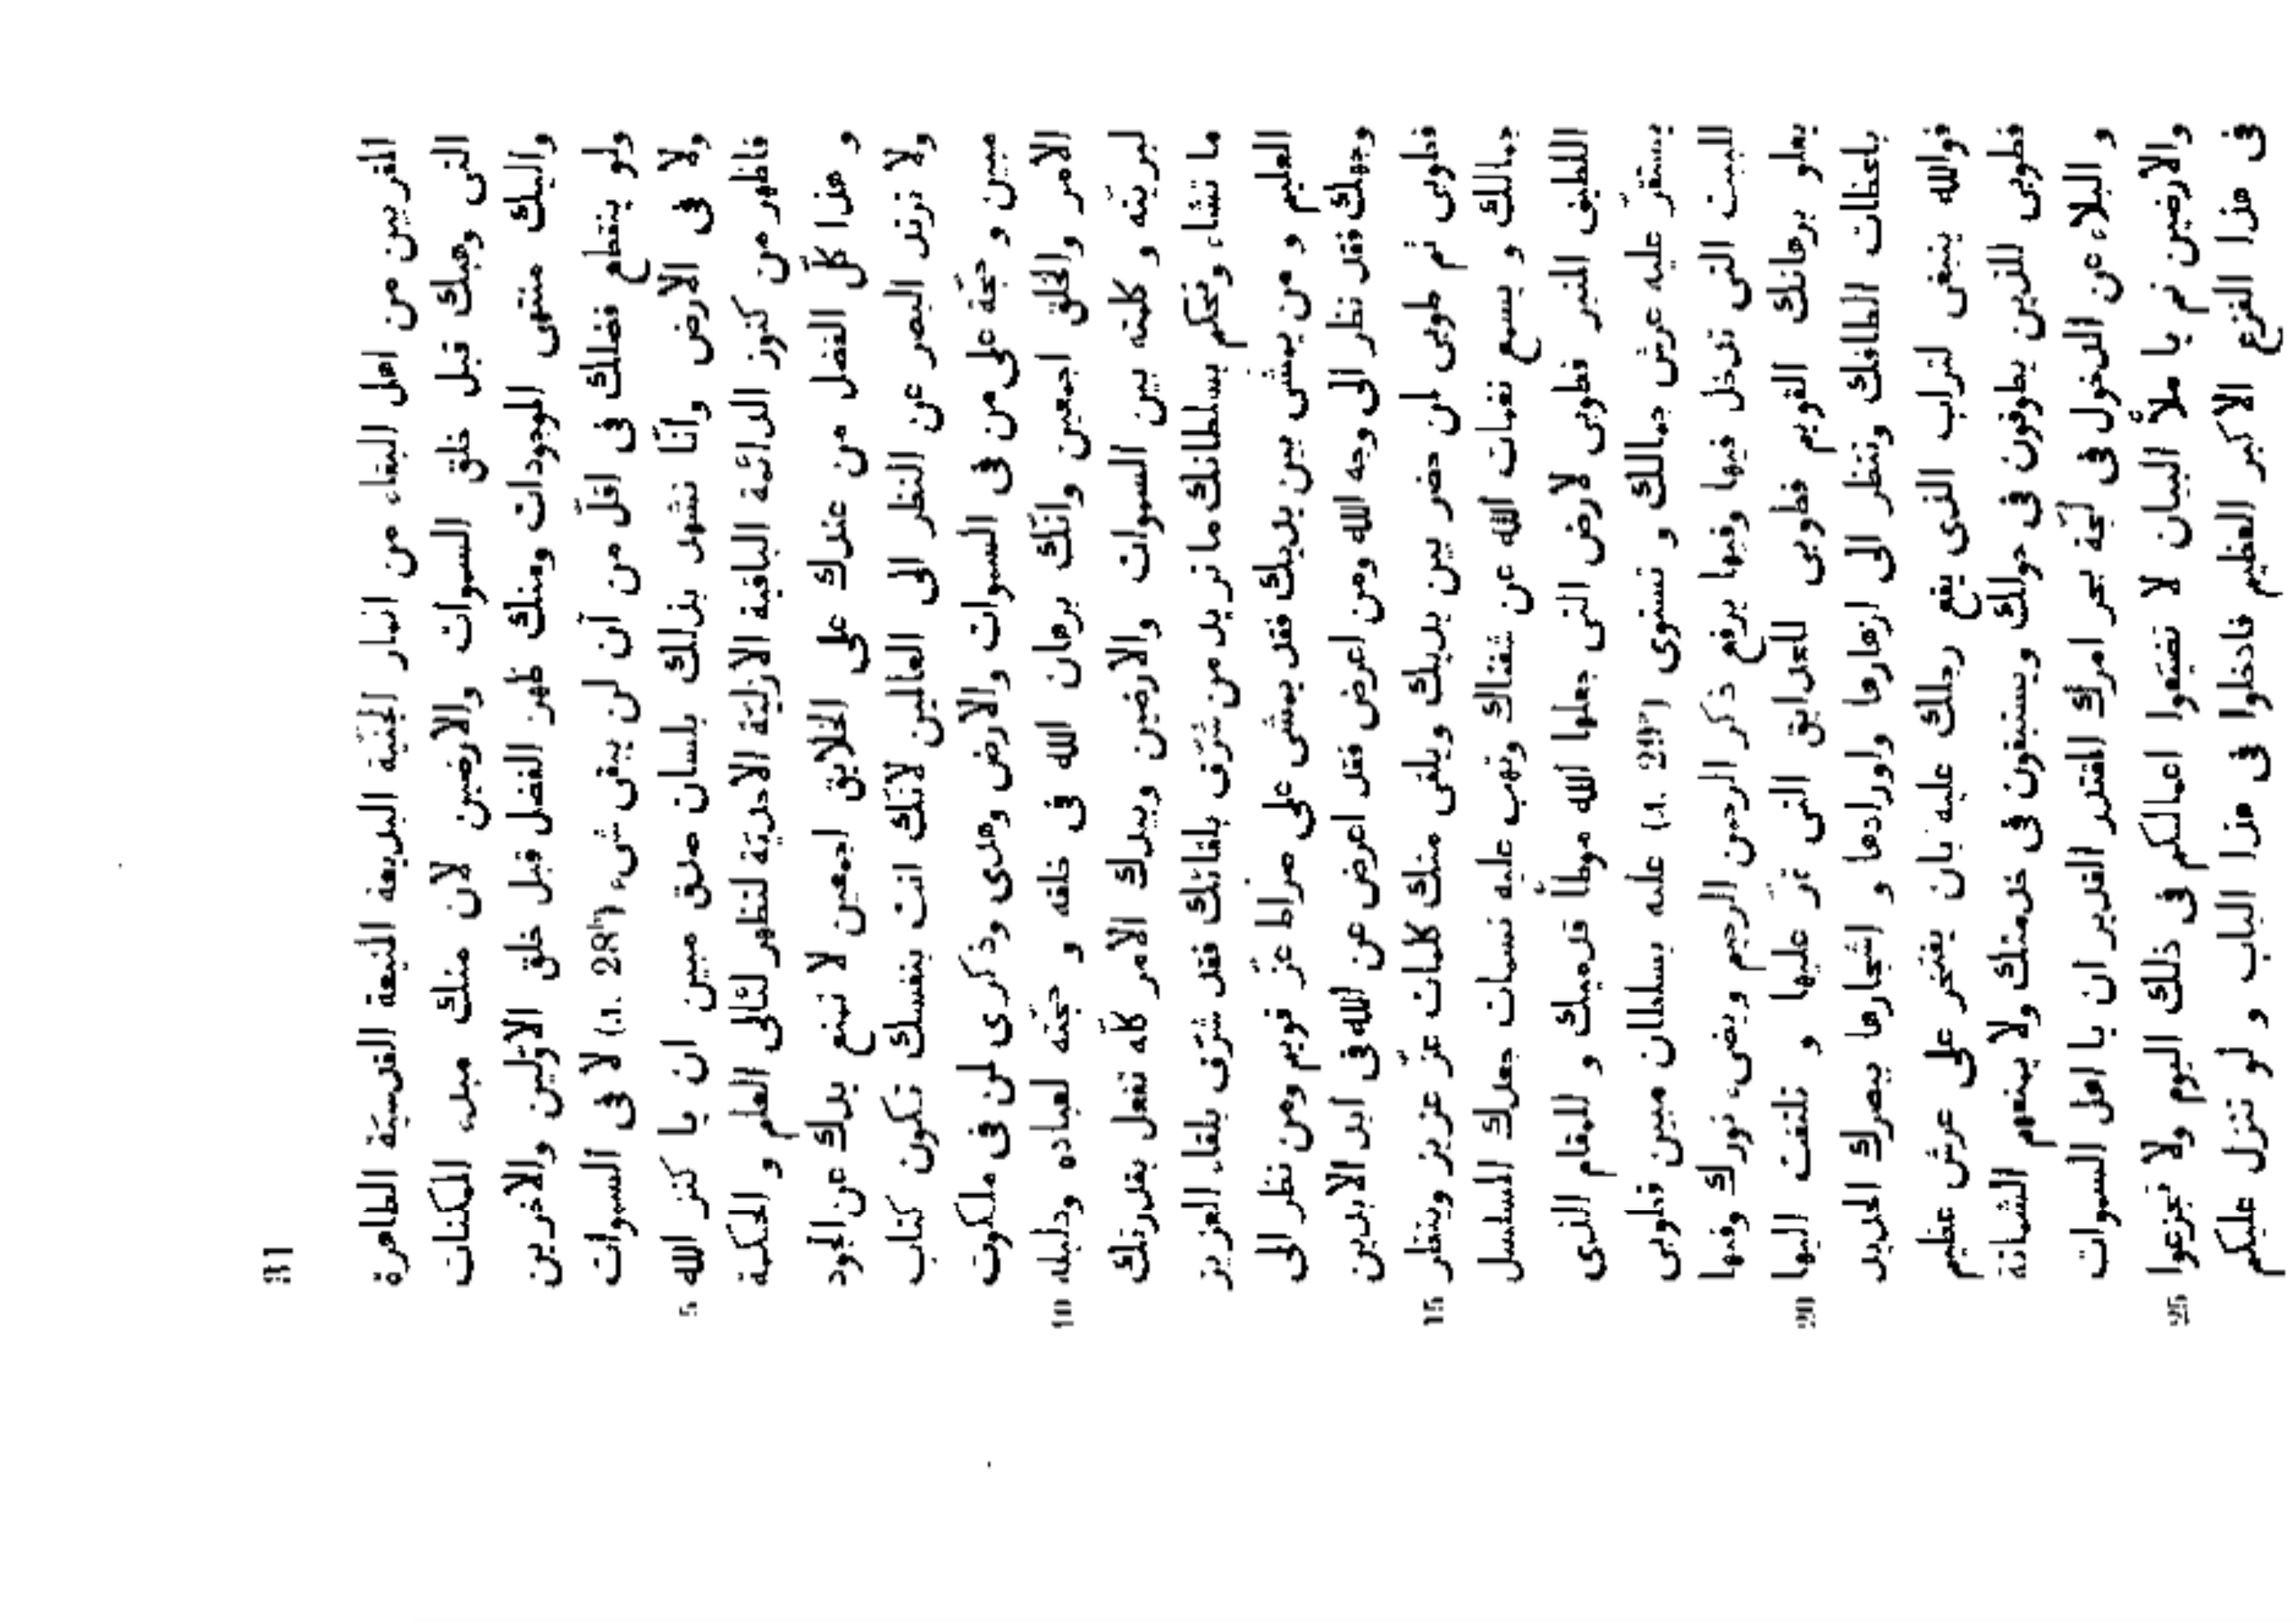 31
المقربين من اهل البقاء من اثمار الجنّية البديعة المنيعة القدسيّة الطاهرة
التى وهبك قبل خلق السموات والارضين لان منك مبدء الممكنات
واليك منتهى الموجودات ومنك ظهر الفضل قبل خلق الاوّلين والاخرين
ولو ينقطع فضلك فى اقلّ من آن لن يبقى شىء (A. 28ᵇ) لا فى السموات
5 ولا فى الارض وانّا نشهد بذلك بلسان صدق مبين ان يا كنز الله
فاظهر من كنوز الدائمة الباقية الازليّة الاحديّة لتظهر لئالى العلم و الحكمة
و هذا كلّ الفضل من عندك على الخلايق اجمعين لا تمنع يدك عن الجود
ولا ترتد البصر عن النظر الى العالمين لانّك انت بنفسك تكون كتاب
مبين و حجّة على من فى السموات والارض وهدى وذكرى لمن فى ملكوت
10 الامر والخلق اجمعين وانّك برهان الله فى خلقه و حجّته لعباده ودليله
لبريّته و كلمته بين السموات والارضين وبيدك الامر كلّه تفعل بقدرتك
ما تشاء وتحكم بسلطانك ما تريد من شرّف بلقائك فقد شرّف بلقاء العزيز
العليم و من يمشى بين يديك فقد يمشى على صراط عزّ قويم ومن نظر الى
وجهك فقد نظر الى وجه الله ومن اعرض فقد اعرض عن الله فى ابد الابدين
15 فطوبى ثم طوبى لمن حضر بين يديك ويلقى منك كلمات عزّ عزيز وينظر
جمالك و يسمع نغمات الله عن شفتاك وتهب عليه نسمات جعدك المسلسل
اللطيف المنير فطوبى لارض التى جعلها الله موطأ قدميك و للمقام الذى
يستقرّ عليه عرش جمالك و تستوى (A. 29ᵃ) عليه بسلطان مبين فطوبى
للبيت التى تدخل فيها وفيها يرفع ذكر الرحمن الرحيم ويضىء نورك وفيها
20 يعلو برهانك القويم فطوبى للحدايق التى تمرّ عليها و تلتفت اليها
بلحظات الطافك وتنظر الى ازهارها واورادها و اشجارها ببصرك الحديد
فوالله ينبغى لتراب الذى يقع رجلك عليه بان يفتخر على عرش عظيم
فطوبى للذين يطوفون فى حولك ويستبقون فى خدمتك ولا يمنعهم الشماتة
و البلاء عن الدخول فى لجّة بحر امرك المقتدر القدير ان يا اهل السموات
25 والارضين ثم يا ملأ البيان لا تضيّعوا اعمالكم فى ذلك اليوم ولا تجزعوا
فى هذا الفزع الاكبر العظيم فادخلوا فى هذا الباب و لو تنزل عليكم